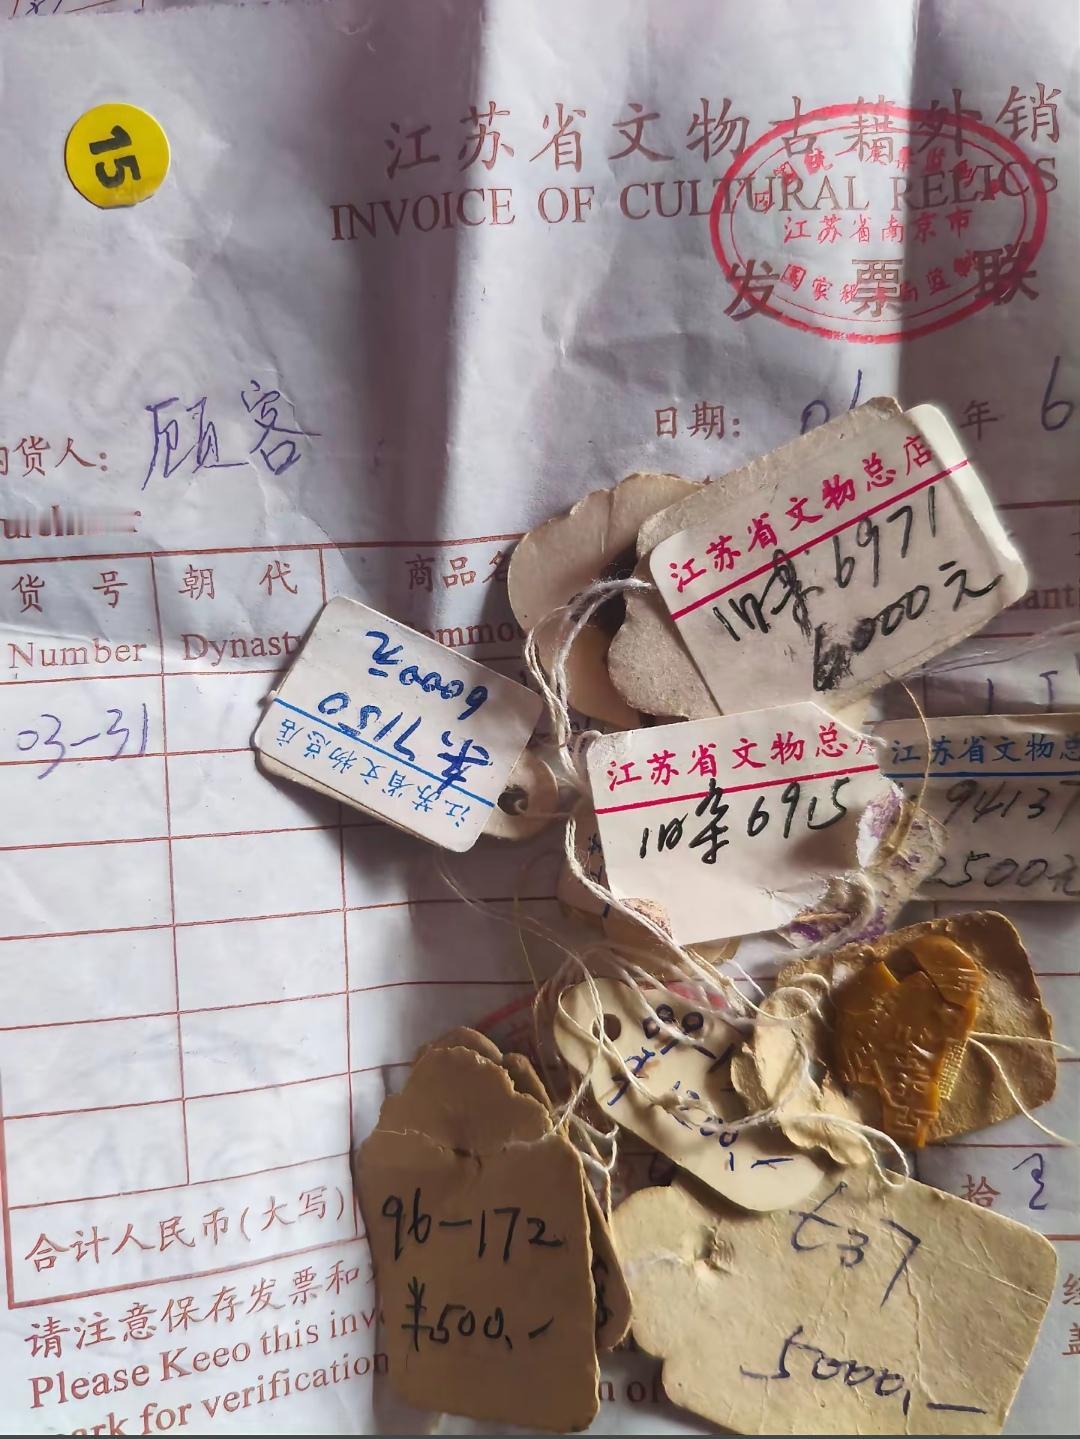 15
江苏省文物古籍外销
INVOICE OF CULTURAL RELICS
江苏省南京市
发票联
购货人: 顾客
日期:
年 6
货号
朝代
商品名
Number
Dynasty
Commo
03-31
江苏省文物总店
旧杂6971
6000元
江苏省文物总店
杂7150
6000元
江苏省文物总
旧杂6915
江苏省文物总
94137
2500元
96-172
¥500.-
C37
5000.-
拾
合计人民币(大写)
请注意保存发票和
Please Keeo this inv
ark for verification
n of